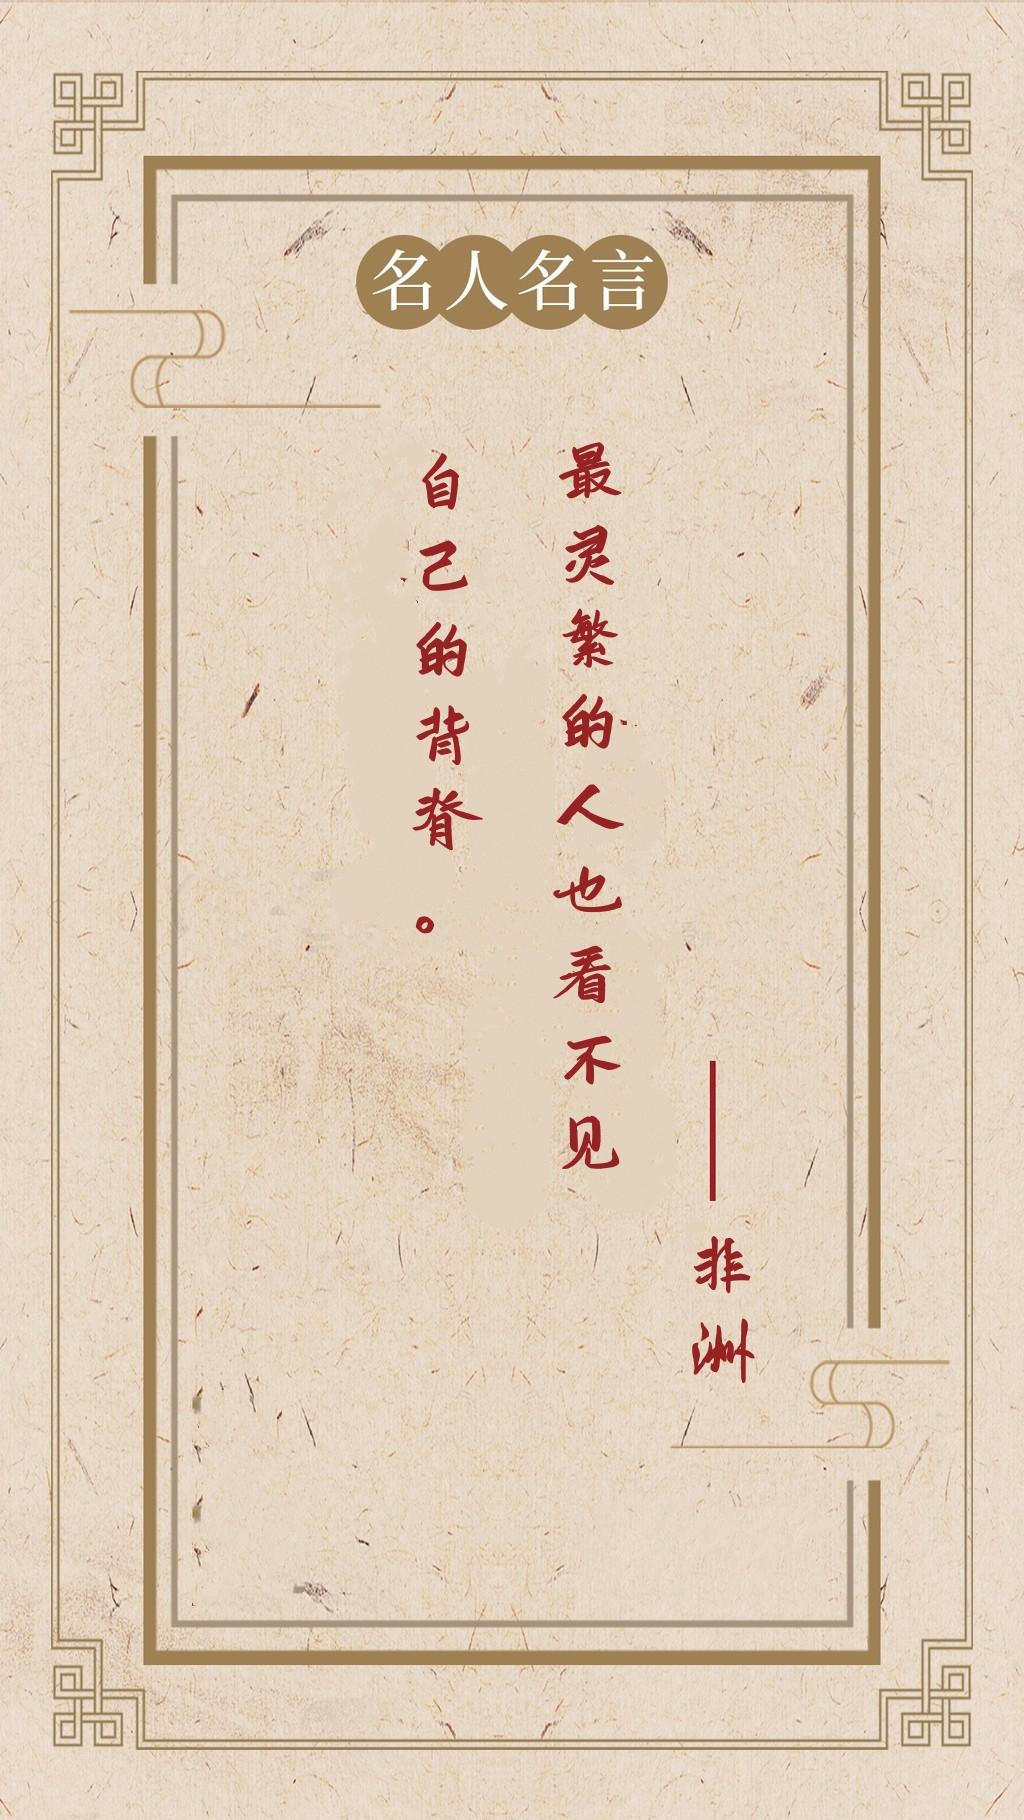 名人名言
最灵繁的人也看不见
自己的背脊。
——非洲